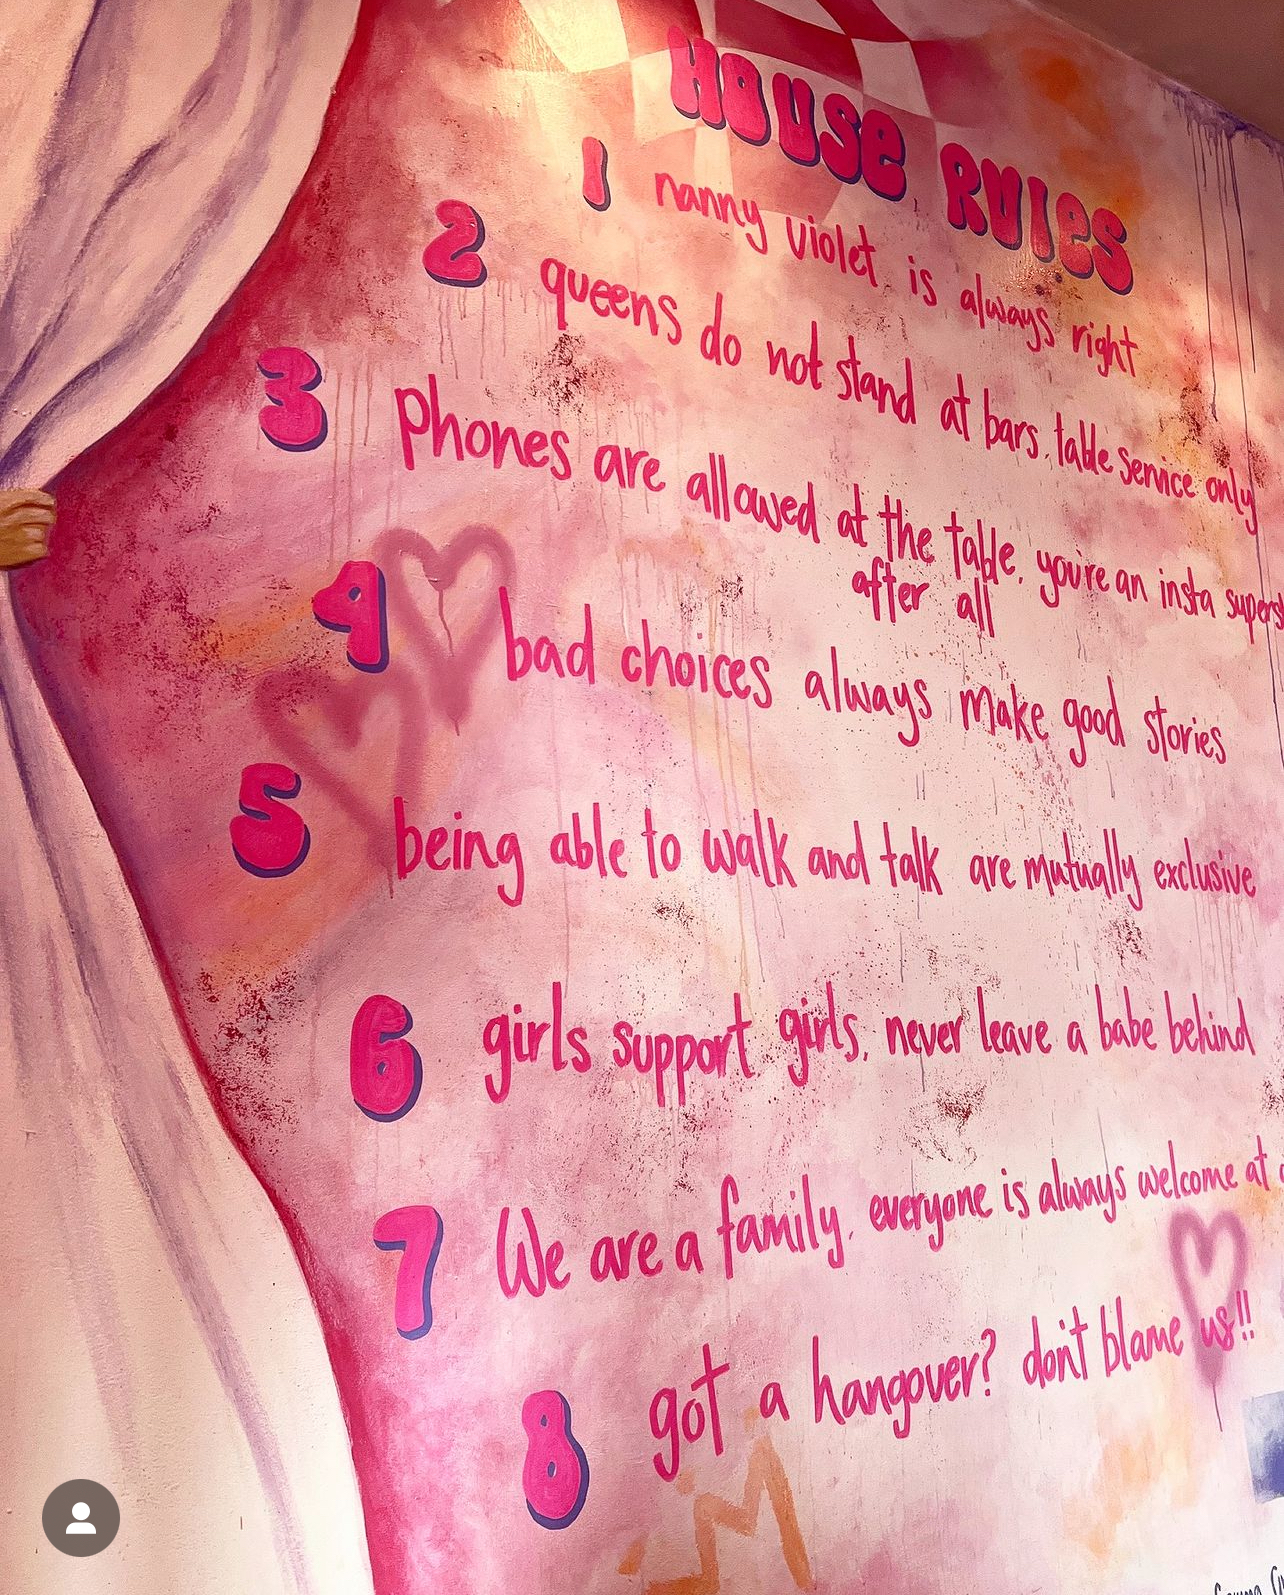 House Rules
1 nanny violet is always right
2 queens do not stand at bars, table service only
3 phones are allowed at the table, you're an insta
after all
4 bad choices always make good stories
5 being able to walk and talk are mutually exclusive
6 girls support girls, never leave a babe behind
7 We are a family, everyone is always welcome at
8 got a hangover? don't blame us!!